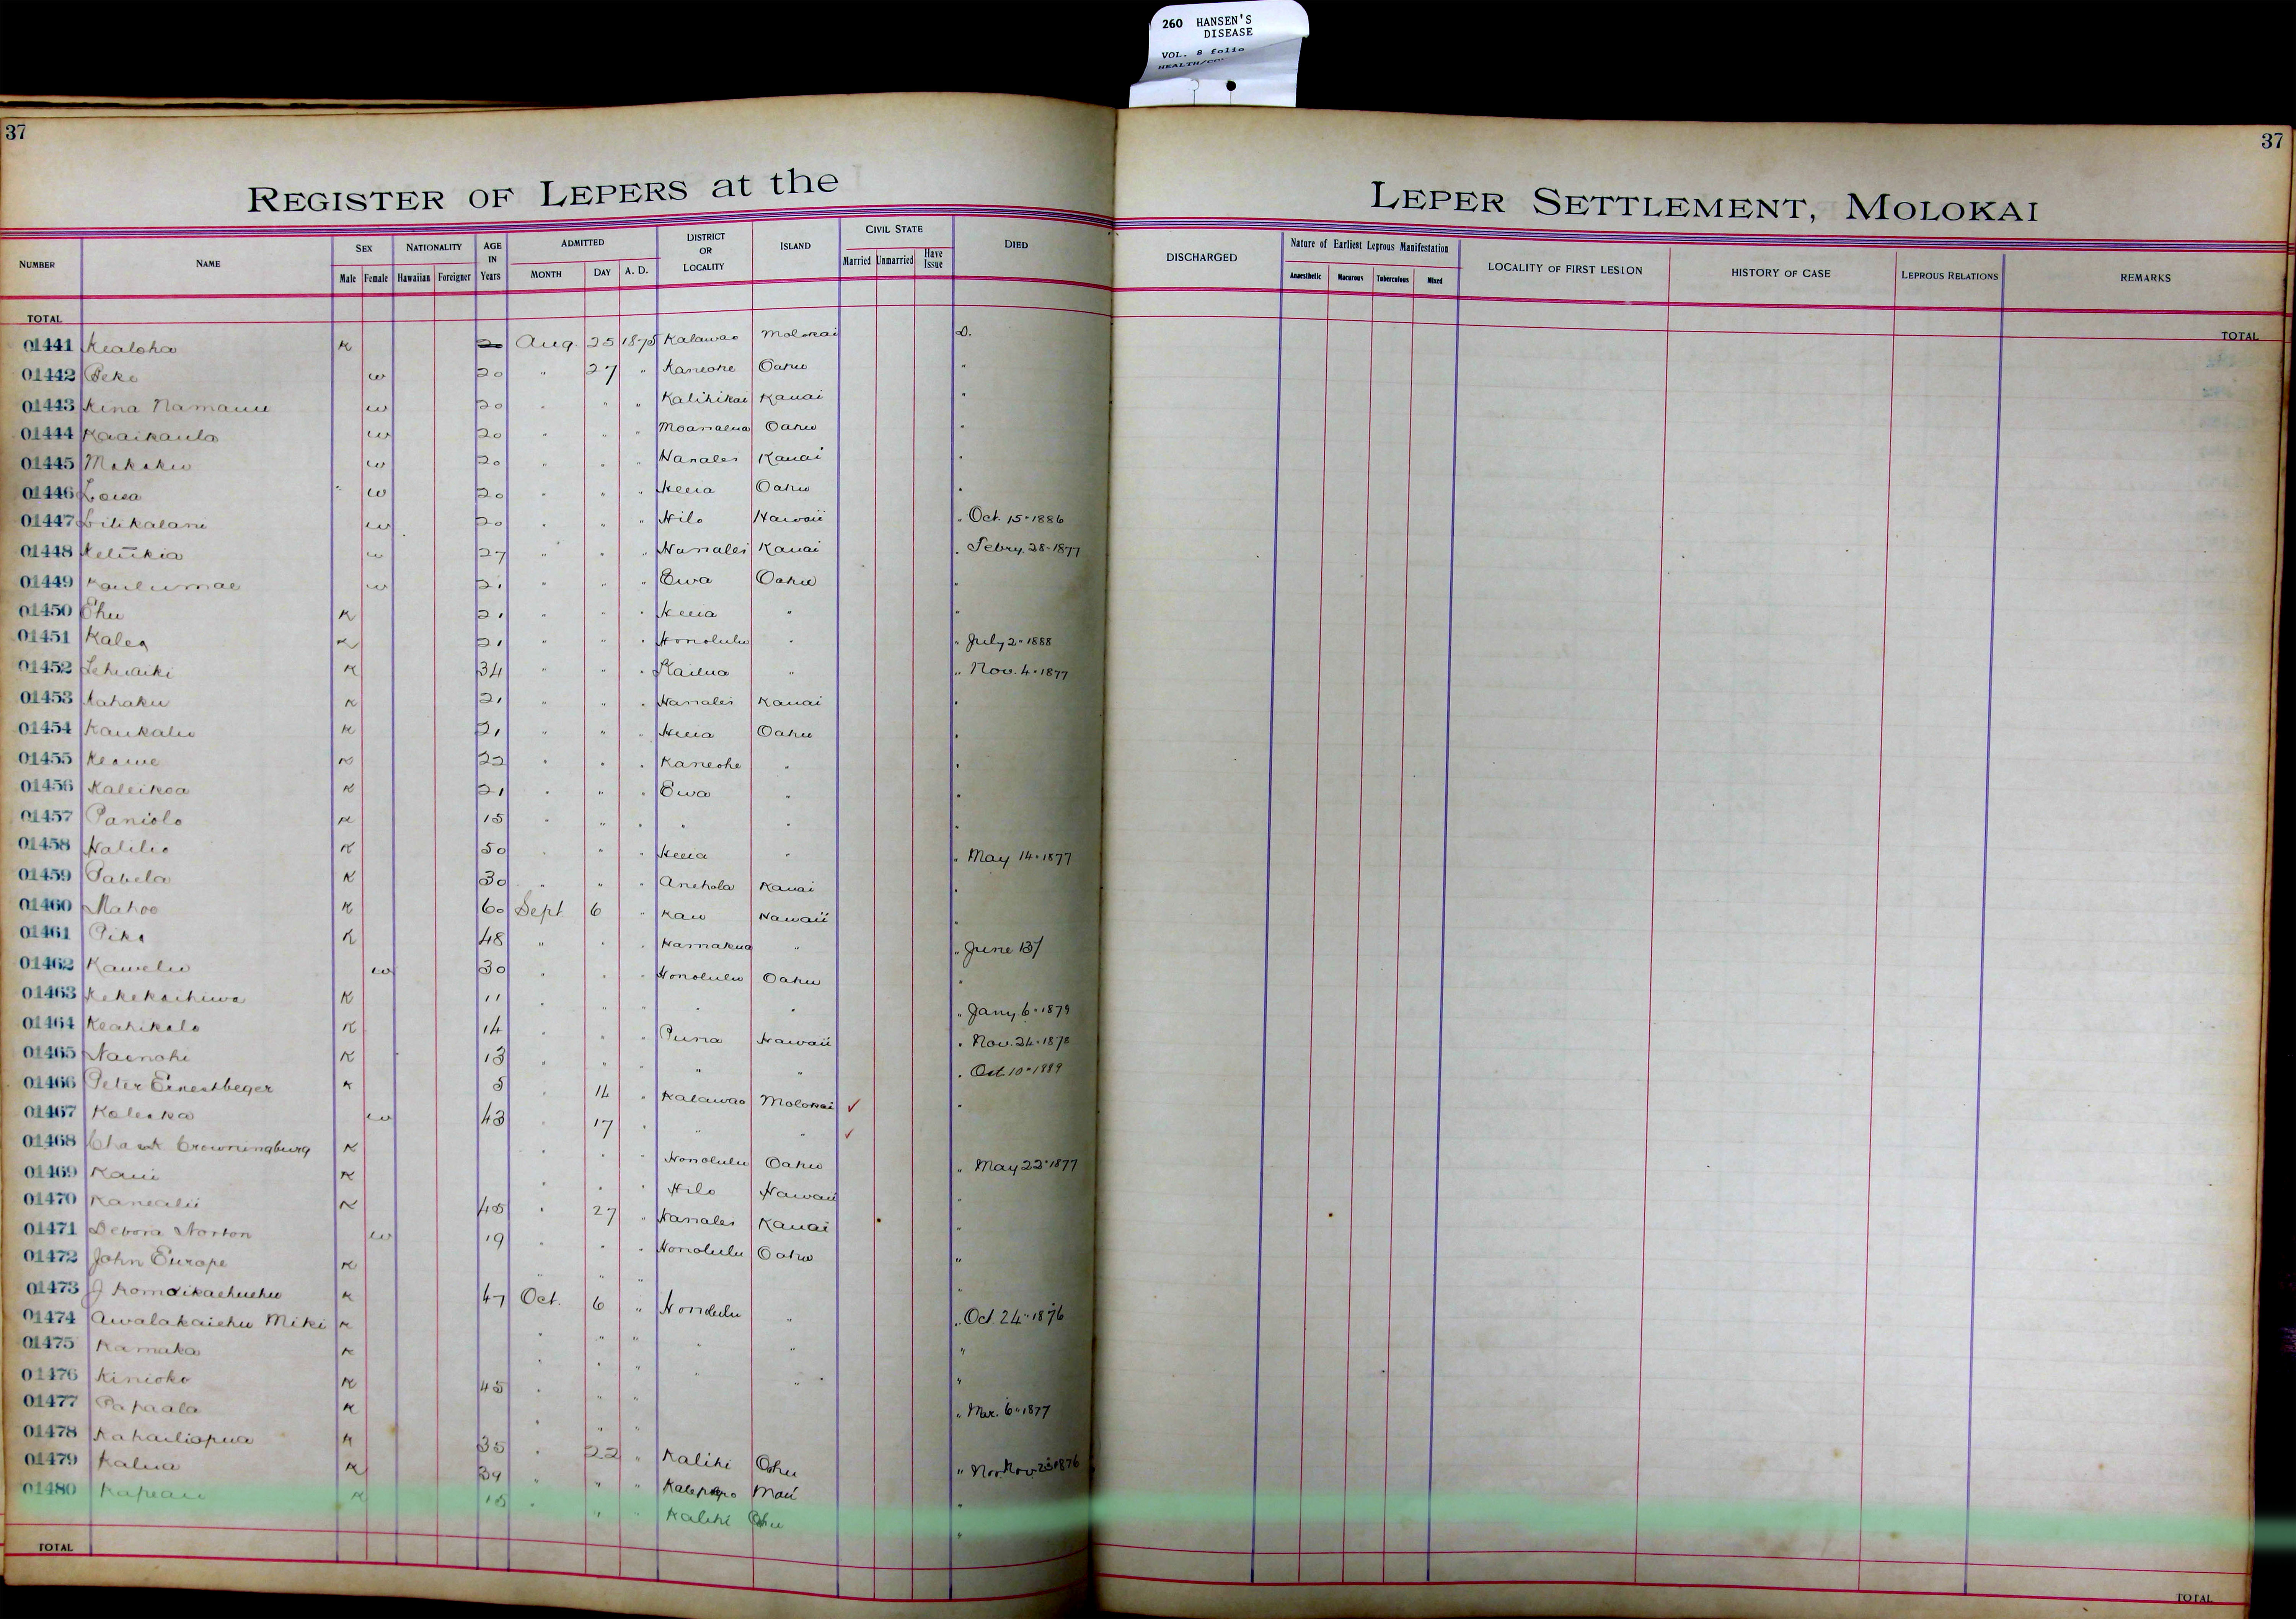 260 HANSEN'S
DISEASE
VOL. 8 folio
37
37
REGISTER OF LEPERS at the
LEPER SETTLEMENT, MOLOKAI
NUMBER NAME SEX Male Female NATIONALITY Hawaiian Foreigner AGE IN Years ADMITTED MONTH DAY A. D. DISTRICT OR LOCALITY ISLAND CIVIL STATE Married Unmarried Have Issue DIED
DISCHARGED Nature of Earliest Leprous Manifestation Anaesthetic Macurous Tuberculous Mixed LOCALITY OF FIRST LESION HISTORY OF CASE LEPROUS RELATIONS REMARKS
TOTAL
TOTAL
01441 Kealoha K 20 Aug. 25 1875 Kalawao Molokai D.
01442 Peke w 20 " 27 " Kaneohe Oahu "
01443 Kina Namauu w 20 " " " Kalihikai Kauai "
01444 Kaaikaula w 20 " " " Moanalua Oahu "
01445 w 20 " " " Hanalei Kauai "
01446 w 20 " " " Heeia Oahu "
01447 Lilikalani w 20 " " " Hilo Hawaii " Oct. 15 " 1886
01448 Keliikia w 27 " " " Hanalei Kauai " Febry. 28 " 1877
01449 Kaulumae w 21 " " " Ewa Oahu "
01450 Ehu K 21 " " " Heeia " "
01451 Kalea K 21 " " " Honolulu " " July 2 " 1888
01452 Lehuaiki K 34 " " " Kailua " " Nov. 4 " 1877
01453 Kahaku K 21 " " " Hanalei Kauai "
01454 Kaukaliu K 21 " " " Heeia Oahu "
01455 Keawe K 22 " " " Kaneohe " "
01456 Kaleikoa K 21 " " " Ewa " "
01457 Paniolo K 15 " " " " " "
01458 Halilio K 50 " " " Heeia " " May 14 " 1877
01459 Pabela K 30 " " " Anehola Kauai "
01460 Mahoe K 60 Sept 6 " Kau Hawaii "
01461 Piko K 48 " " " Hamakua " " June 13/
01462 Kawelu w 30 " " " Honolulu Oahu "
01463 Kekekachiwa K 11 " " " " " " Jany 6 " 1879
01464 Keahikolo K 14 " " " Puna Hawaii " Nov. 24 " 1878
01465 Nainohi K 13 " " " " " " Oct 10 " 1889
01466 Peter Ernestbeger K 5 " 14 " Kalawao Molokai ✓ "
01467 w 43 " 17 " " " ✓
01468 Crowningburg K " " " Honolulu Oahu " May 22 " 1877
01469 Kaui K " " " Hilo Hawaii "
01470 Kanealii K 45 " 27 " Hanalei Kauai "
01471 Debora Norton w 19 " " " Honolulu Oahu "
01472 John Europe K " " " "
01473 J K 47 Oct. 6 " Honolulu " " Oct. 24 " 1876
01474 Awalakaiehu Miki K " " " " " "
01475 Kamaka K " " " " " "
01476 Kinioko K 45 " " " " Mar. 6 " 1877
01477 Papaala K " " "
01478 Kahailiopua K 35 " 22 " Kalihi Oahu " Nov. 23 1876
01479 Kalua K 39 " " " Maui "
01480 Kapeau K 15 " " " Kalihi Oahu "
TOTAL
TOTAL